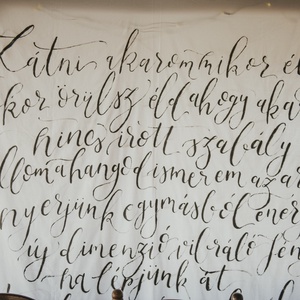 Látni akarom mikor é
kor örülsz éld ahogy aka
nincs írott szabály
llom a hangod ismerem az ar
nyerjünk egymásból ener
új dimenzió vibráló fén
ha lépjünk át